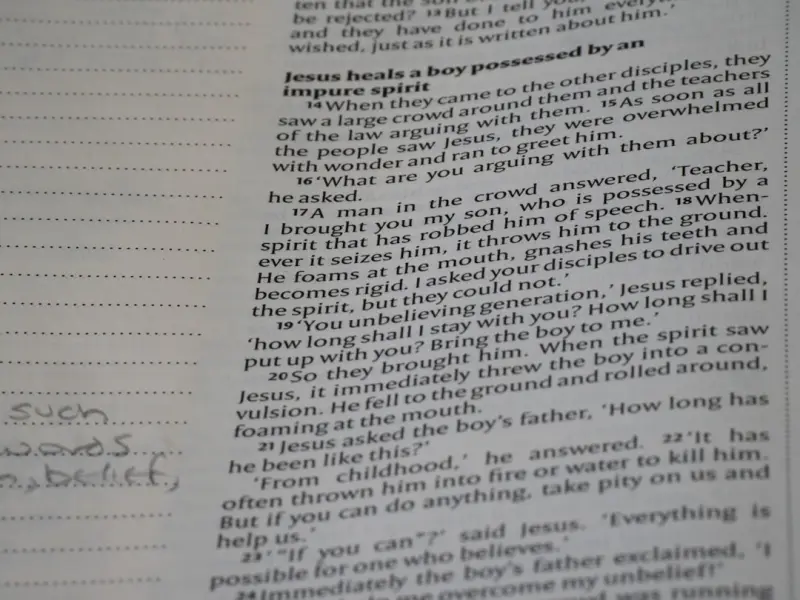 ten that the son
be rejected? 13 But I tell you,
and they have done to him everyth
wished, just as it is written about him.'
Jesus heals a boy possessed by an
impure spirit
14 When they came to the other disciples, they
saw a large crowd around them and the teachers
of the law arguing with them. 15 As soon as all
the people saw Jesus, they were overwhelmed
with wonder and ran to greet him.
16 'What are you arguing with them about?'
he asked.
17 A man in the crowd answered, 'Teacher,
I brought you my son, who is possessed by a
spirit that has robbed him of speech. 18 When-
ever it seizes him, it throws him to the ground.
He foams at the mouth, gnashes his teeth and
becomes rigid. I asked your disciples to drive out
the spirit, but they could not.'
19 'You unbelieving generation,' Jesus replied,
'how long shall I stay with you? How long shall I
put up with you? Bring the boy to me.'
20 So they brought him. When the spirit saw
Jesus, it immediately threw the boy into a con-
vulsion. He fell to the ground and rolled around,
foaming at the mouth.
21 Jesus asked the boy's father, 'How long has
he been like this?'
'From childhood,' he answered. 22 'It has
often thrown him into fire or water to kill him.
But if you can do anything, take pity on us and
help us.'
23 '"If you can"?' said Jesus. 'Everything is
possible for one who believes.'
24 Immediately the boy's father exclaimed, 'I
me overcome my unbelief!'
was running
such
words
belief,